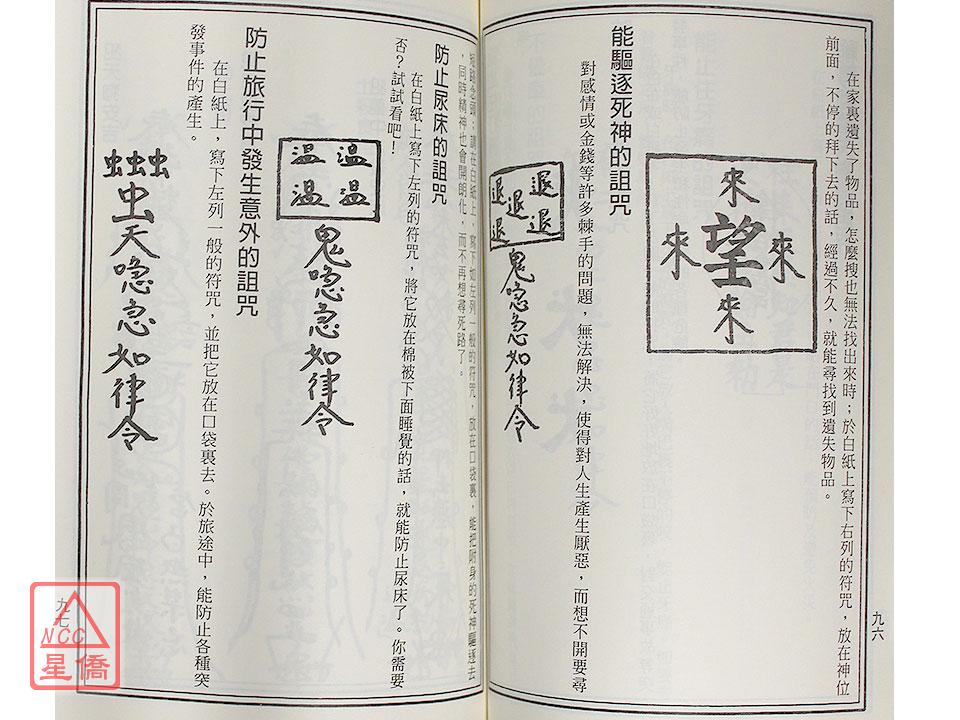 在家裏遺失了物品，怎麼搜也無法找出來時；於白紙上寫下右列的符咒，放在神位
前面，不停的拜下去的話，經過不久，就能尋找到遺失物品。
來
來望來
來
能驅逐死神的詛咒
對感情或金錢等許多棘手的問題，無法解決，使得對人生產生厭惡，而想不開要尋
退退退退退
鬼喼急如律令
九六
念頭；請在白紙上，寫下如左列一般的符咒，放在口袋裏，能把附身的死神驅逐去
，同時精神也會開朗化，而不再想尋死路了。
防止尿床的詛咒
在白紙上寫下左列的符咒，將它放在棉被下面睡覺的話，就能防止尿床了。你需要
否？試試看吧！
溫溫溫溫
鬼喼急如律令
防止旅行中發生意外的詛咒
在白紙上，寫下左列一般的符咒，並把它放在口袋裏去。於旅途中，能防止各種突
發事件的產生。
虫虫虫
虫天喼急如律令
九七
NCC
星僑